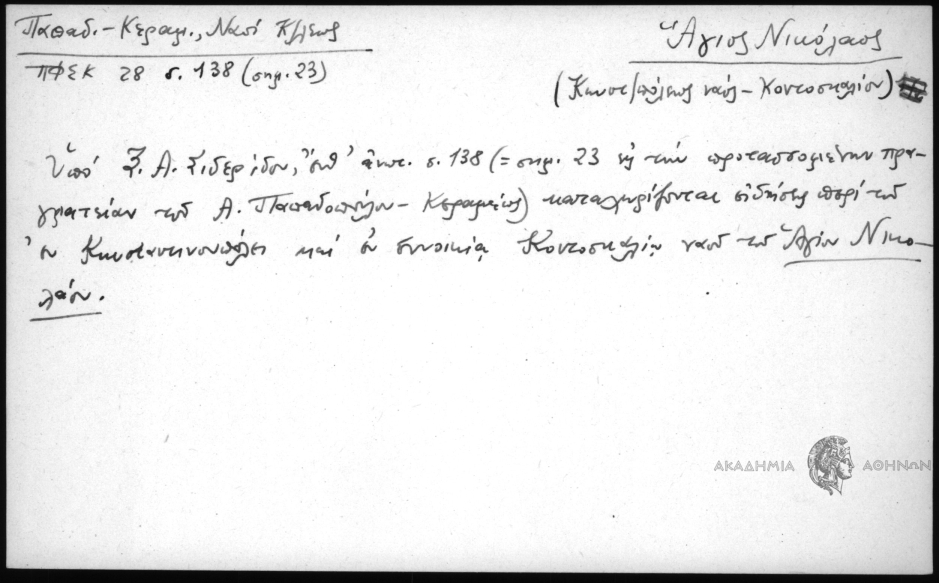 Παπαδ.-Κεραμ., Ναοί Κ/λεως
Ἅγιος Νικόλαος
ΠΦΣΚ 28 σ. 138 (σημ. 23)
(Κωνστ/πόλεως ναός - Κοντοσκαλίου)
Ὑπό Ξ. Α. Σιδερίδου, ἔνθ' ἀνωτ. σ. 138 (= σημ. 23 εἰς τήν προτασσομένην πρα-
γματείαν τοῦ Α. Παπαδοπούλου - Κεραμέως) καταχωρίζονται εἰδήσεις περί τοῦ
ἐν Κωνσταντινουπόλει καί ἐν συνοικίᾳ Κοντοσκαλίῳ ναοῦ τοῦ Ἁγίου Νικο-
λάου.
ΑΚΑΔΗΜΙΑ ΑΘΗΝΩΝ